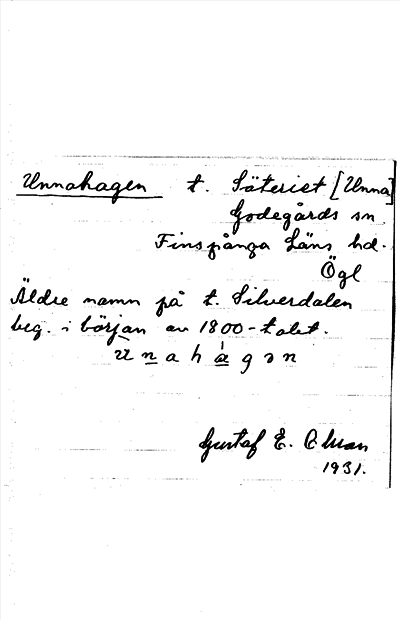 Unnahagen t. Säteriet [Unna]
Godegårds sn
Finspånga Läns hd.
Ögl
Äldre namn på t. Silverdalen
beg. i början av 1800-talet.
u n a h a g ə n
Gustaf E.
1931.